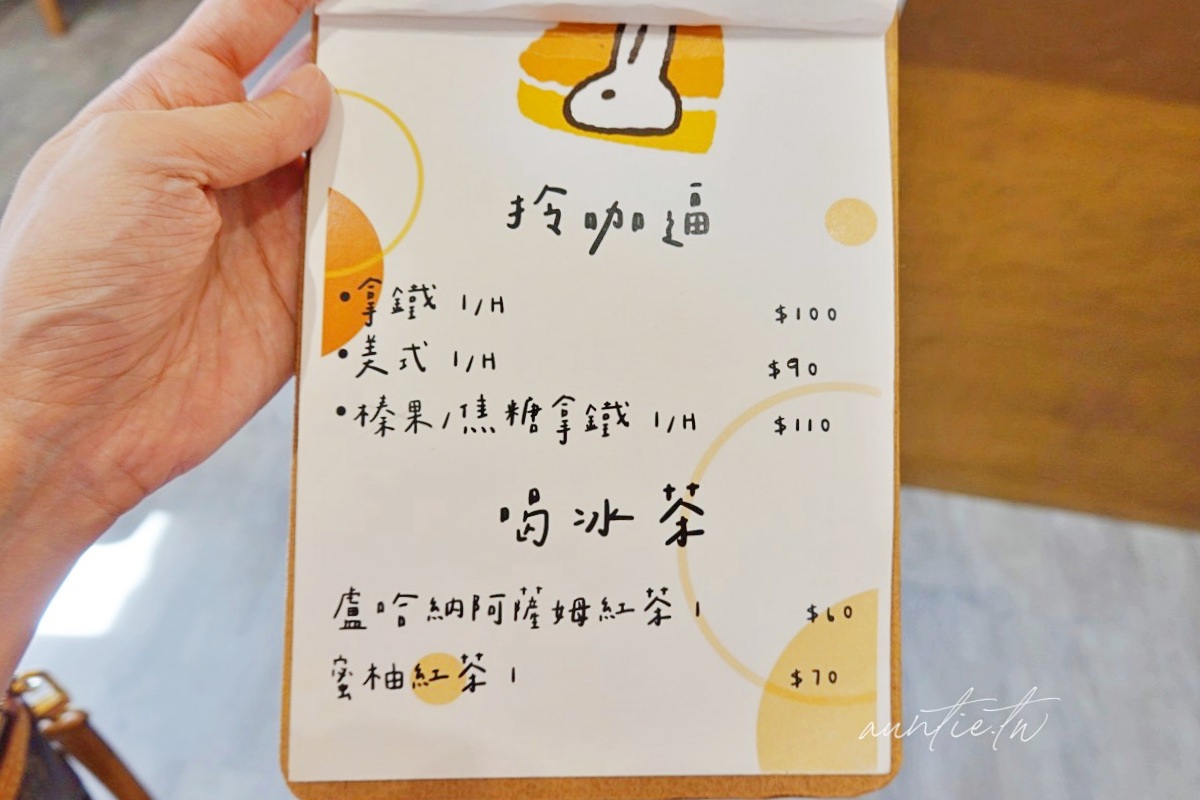 拎咖逼
•拿鐵 I/H $100
•美式 I/H $90
•榛果/焦糖拿鐵 I/H $110
喝冰茶
盧哈納阿薩姆紅茶 I $60
蜜柚紅茶 I $70
auntie.tw